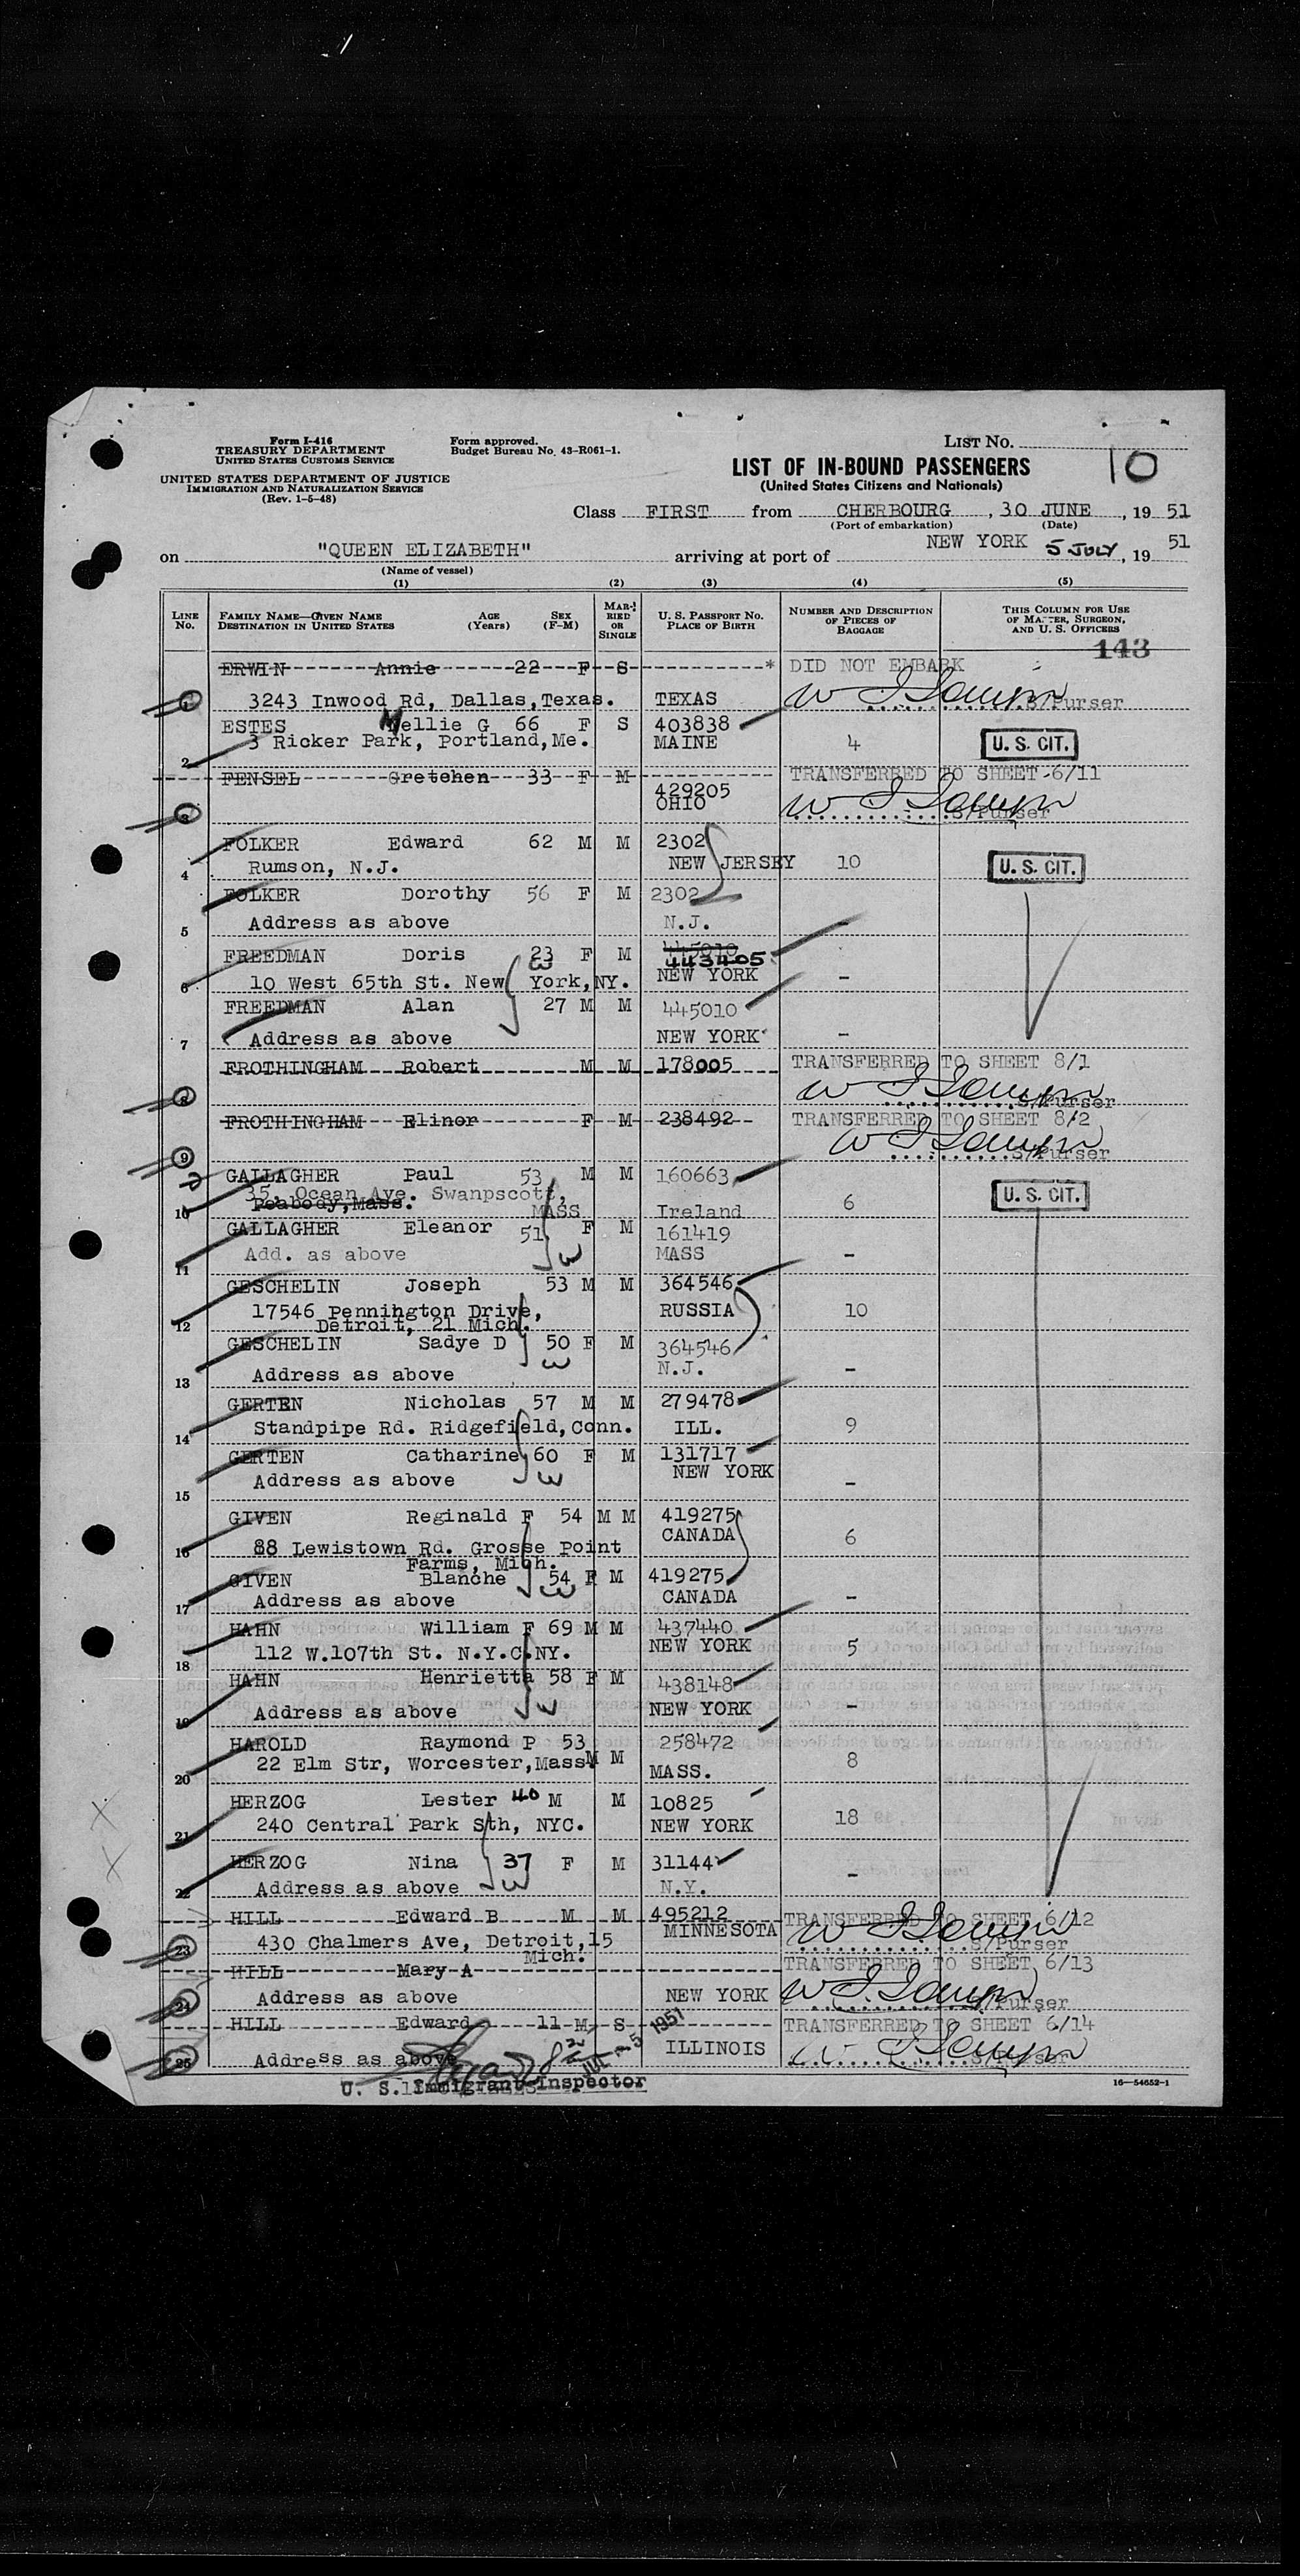 Form I-416
TREASURY DEPARTMENT
UNITED STATES CUSTOMS SERVICE
UNITED STATES DEPARTMENT OF JUSTICE
IMMIGRATION AND NATURALIZATION SERVICE
(Rev. 1-5-48)
Form approved.
Budget Bureau No. 43-R061-1.
LIST NO.
10
LIST OF IN-BOUND PASSENGERS
(United States Citizens and Nationals)
Class FIRST from CHERBOURG, 30 JUNE, 1951
(Port of embarkation) (Date)
on "QUEEN ELIZABETH" arriving at port of NEW YORK 5 JULY, 1951
(Name of vessel)
(1) (2) (3) (4) (5)
LINE NO. FAMILY NAME—GIVEN NAME DESTINATION IN UNITED STATES AGE (Years) SEX (F-M) MARRIED OR SINGLE U. S. PASSPORT NO. PLACE OF BIRTH NUMBER AND DESCRIPTION OF PIECES OF BAGGAGE THIS COLUMN FOR USE OF MASTER, SURGEON, AND U. S. OFFICERS
143
ERWIN Annie 22 F S * DID NOT EMBARK
1 3243 Inwood Rd, Dallas, Texas. TEXAS S/Purser
ESTES Nellie G 66 F S 403838
2 3 Ricker Park, Portland, Me. MAINE 4 U. S. CIT.
FENSEL Gretchen 33 F M TRANSFERRED TO SHEET 6/11
429205
3 OHIO S/Purser
FOLKER Edward 62 M M 2302
4 Rumson, N.J. NEW JERSEY 10 U. S. CIT.
FOLKER Dorothy 56 F M 2302
5 Address as above N.J. -
FREEDMAN Doris 23 F M 445010 443405
6 10 West 65th St. New York, NY. NEW YORK -
FREEDMAN Alan 27 M M 445010
7 Address as above NEW YORK -
FROTHINGHAM Robert M M 178005 TRANSFERRED TO SHEET 8/1
8 S/Purser
FROTHINGHAM Elinor F M 238492 TRANSFERRED TO SHEET 8/2
9 S/Purser
GALLAGHER Paul 53 M M 160663
35, Ocean Ave. Swanpscott, MASS
10 Peabody, Mass. Ireland 6 U. S. CIT.
GALLAGHER Eleanor 51 F M 161419
11 Add. as above MASS -
GESCHELIN Joseph 53 M M 364546
12 17546 Pennington Drive, RUSSIA 10
Detroit, 21 Mich.
GESCHELIN Sadye D 50 F M 364546
13 Address as above N.J. -
GERTEN Nicholas 57 M M 279478
14 Standpipe Rd. Ridgefield, Conn. ILL. 9
GERTEN Catharine 60 F M 131717
15 Address as above NEW YORK -
GIVEN Reginald F 54 M M 419275
16 88 Lewistown Rd. Grosse Point CANADA 6
Farms, Mich.
GIVEN Blanche 54 F M 419275
17 Address as above CANADA -
HAHN William F 69 M M 437440
18 112 W.107th St. N.Y.C.NY. NEW YORK 5
HAHN Henrietta 58 F M 438148
19 Address as above NEW YORK -
HAROLD Raymond P 53 M M 258472
20 22 Elm Str, Worcester, Mass. MASS. 8
HERZOG Lester 40 M M 10825
21 240 Central Park Sth, NYC. NEW YORK 18
HERZOG Nina 37 F M 31144
22 Address as above N.Y. -
HILL Edward B M M 495212 TRANSFERRED TO SHEET 6/12
23 430 Chalmers Ave, Detroit, 15 Mich. MINNESOTA S/Purser
HILL Mary A TRANSFERRED TO SHEET 6/13
24 Address as above NEW YORK S/Purser
HILL Edward 11 M S TRANSFERRED TO SHEET 6/14
25 Address as above ILLINOIS S/Purser
JUL - 5 1951
U. S. Immigrant Inspector
16—54652-1